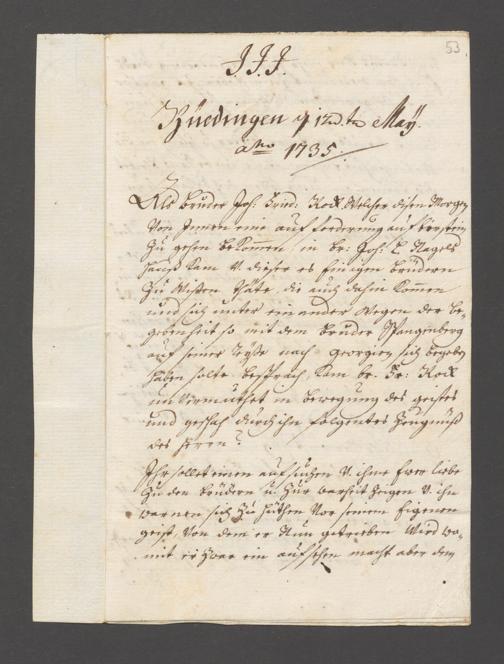 53
J. J. J.
Büedingen d 12d.tn May.
año 1735.
Als bruder Joh: Frid: Rock Welcher disen Morgen
Von Innen eine aufforderung auf
Zu gehen bekommen, in br: Joh: C Nagels
hauß kam V. dieser es einigen brüdern
Zu Wißen thate, die auch dahin kamen
und sich unter einander Wegen der be-
gebenheit so mit dem bruder Spangenberg
auf seiner reyße nach georgien sich begeben
haben solte besprach, kam br. Fr: Rock
unVermuthet in bewegung des geistes
und geschah durch ihn folgentes Zeugnüß
des Herrn:
Ihr sollet einen aufsuchen V. ihme Ewer liebe
Zu den brüdern u. Zur warheit Zeigen V. ihn
warnen sich Zu hüthen Vor seinem Eigenen
geist, Von dem er Nun getrieben Wird wo-
mit er Zwar ein aufsehen macht aber dem